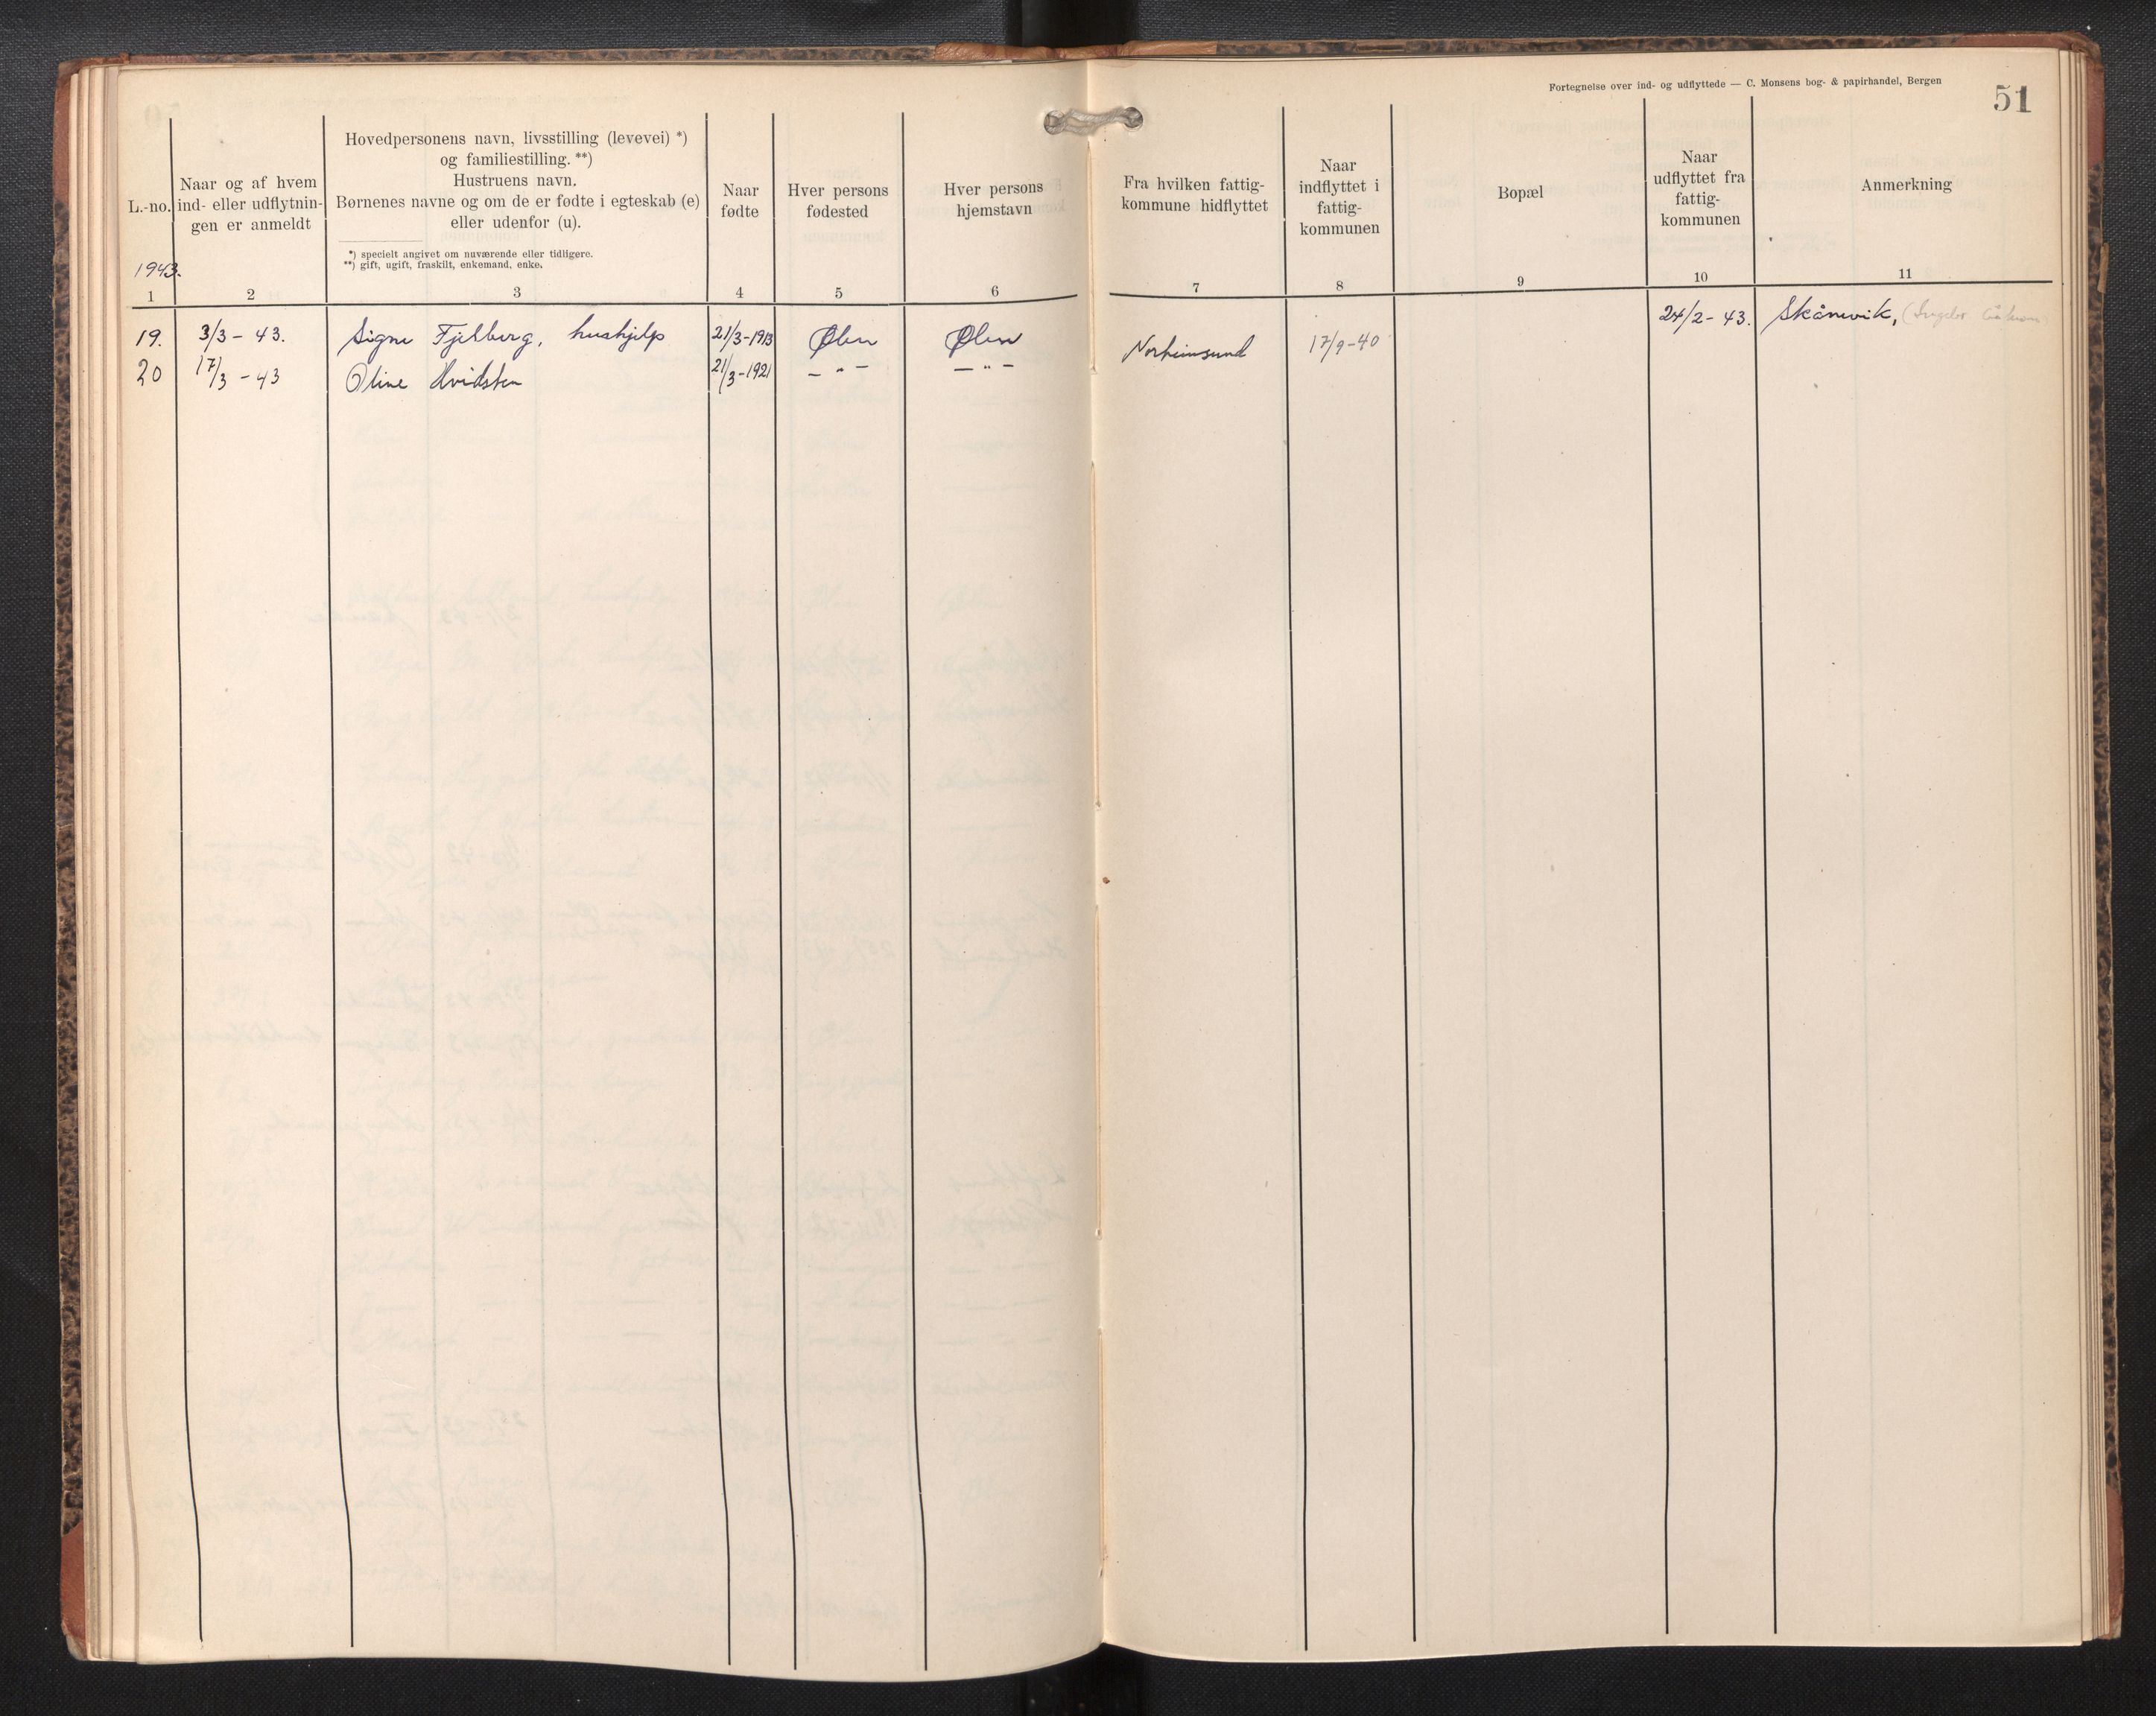 Fortegnelse over ind- og udflyttede — C. Monsens bog- & papirhandel, Bergen
51
L.-no.
Naar og af hvem
ind- eller udflytnin-
gen er anmeldt
Hovedpersonens navn, livsstilling (levevei) *)
og familiestilling. **)
Hustruens navn.
Børnenes navne og om de er fødte i egteskab (e)
eller udenfor (u).
*) specielt angivet om nuværende eller tidligere.
**) gift, ugift, fraskilt, enkemand, enke.
Naar
fødte
Hver persons
fødested
Hver persons
hjemstavn
Fra hvilken fattig-
kommune hidflyttet
Naar
indflyttet i
fattig-
kommunen
Bopæl
Naar
udflyttet fra
fattig-
kommunen
Anmerkning
1943.
1 2 3 4 5 6 7 8 9 10 11
19. 3/3 - 43. Signe Fjelberg, hushjelp 21/3-1913 Ølen Ølen 24/2- 43. Skånevik,
20 17/3 - 43 Oline Hvidsten 21/3-1921 - " - - " - Norheimsund 17/9-40